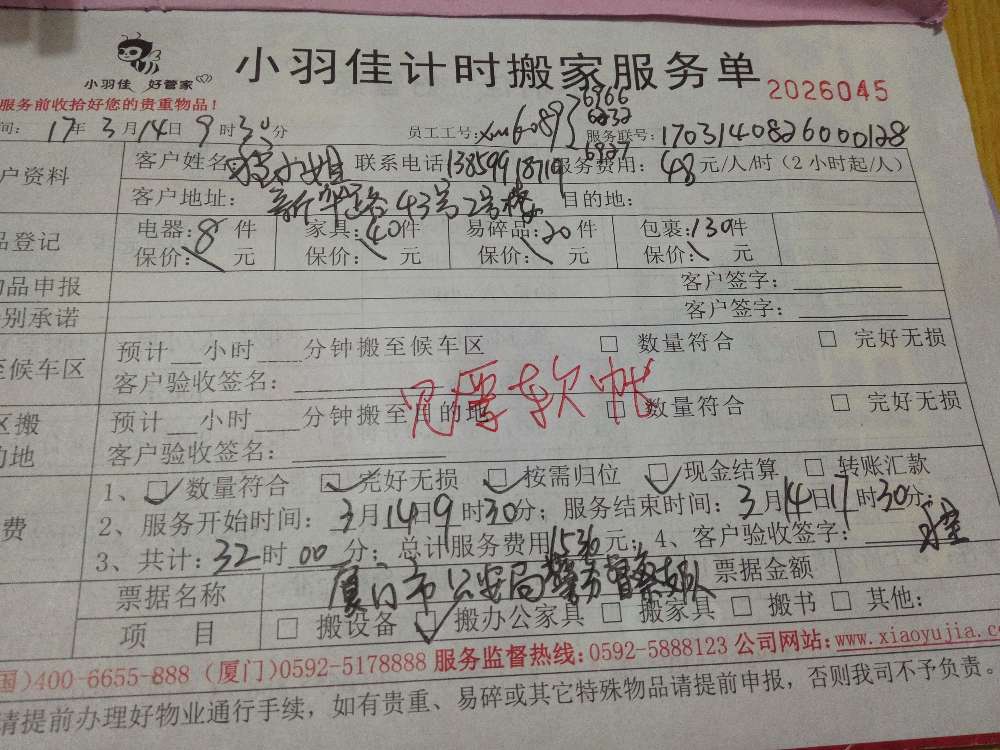 小羽佳 好管家
小羽佳计时搬家服务单
2026045
服务前收拾好您的贵重物品!
间: 17年3月14日9时30分 员工工号: xm6089 6966 6232 6827 服务联号: 17031408260000128
户资料 客户姓名 小姐 联系电话 13859918719 服务费用: 48元/人/时(2小时起/人)
客户地址: 新华路43号2号楼 目的地:
品登记 电器: 8件 家具: 40件 易碎品: 20件 包裹: 130件
保价: 元 保价: 元 保价: 元 保价: 元
物品申报 客户签字:
别承诺 客户签字:
至候车区 预计__小时__分钟搬至候车区 □ 数量符合 □ 完好无损
客户验收签名:
区搬 预计__小时__分钟搬至目的地 □ 数量符合 □ 完好无损
的地 客户验收签名:
费 1、☑数量符合 ☑完好无损 ☑按需归位 ☑现金结算 □ 转账汇款
2、服务开始时间: 3月14日9时30分; 服务结束时间: 3月14日17时30分;
3、共计: 32时00分; 总计服务费用1536元; 4、客户验收签字:
票据名称 厦门市公安局警务督察支队 票据金额
项 目 □ 搬设备 ☑搬办公家具 □ 搬家具 □ 搬书 □ 其他:
国)400-6655-888 (厦门)0592-5178888 服务监督热线:0592-5888123 公司网站:www.xiaoyujia.c
请提前办理好物业通行手续，如有贵重、易碎或其它特殊物品请提前申报，否则我司不予负责。